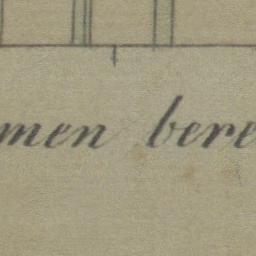 men bere